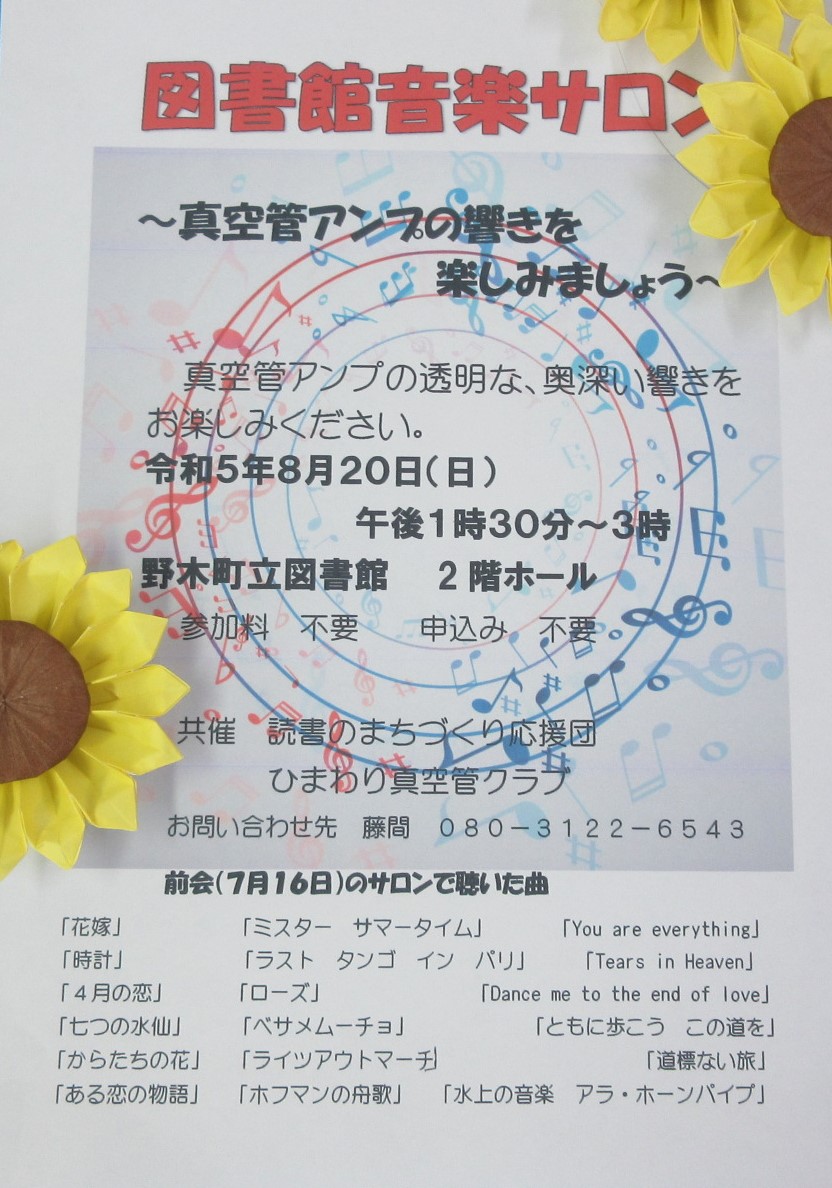 図書館音楽サロン
～真空管アンプの響きを
楽しみましょう～
真空管アンプの透明な、奥深い響きを
お楽しみください。
令和5年8月20日（日）
午後1時30分～3時
野木町立図書館　2階ホール
参加料　不要　　申込み　不要
共催　読書のまちづくり応援団
ひまわり真空管クラブ
お問い合わせ先　藤間　０８０－３１２２－６５４３
前会(7月16日)のサロンで聴いた曲
「花嫁」　「ミスター　サマータイム」　「You are everything」
「時計」　「ラスト　タンゴ　イン　パリ」　「Tears in Heaven」
「４月の恋」　「ローズ」　「Dance me to the end of love」
「七つの水仙」　「ベサメムーチョ」　「ともに歩こう　この道を」
「からたちの花」　「ライツアウトマーチ」　「道標ない旅」
「ある恋の物語」　「ホフマンの舟歌」　「水上の音楽　アラ・ホーンパイプ」